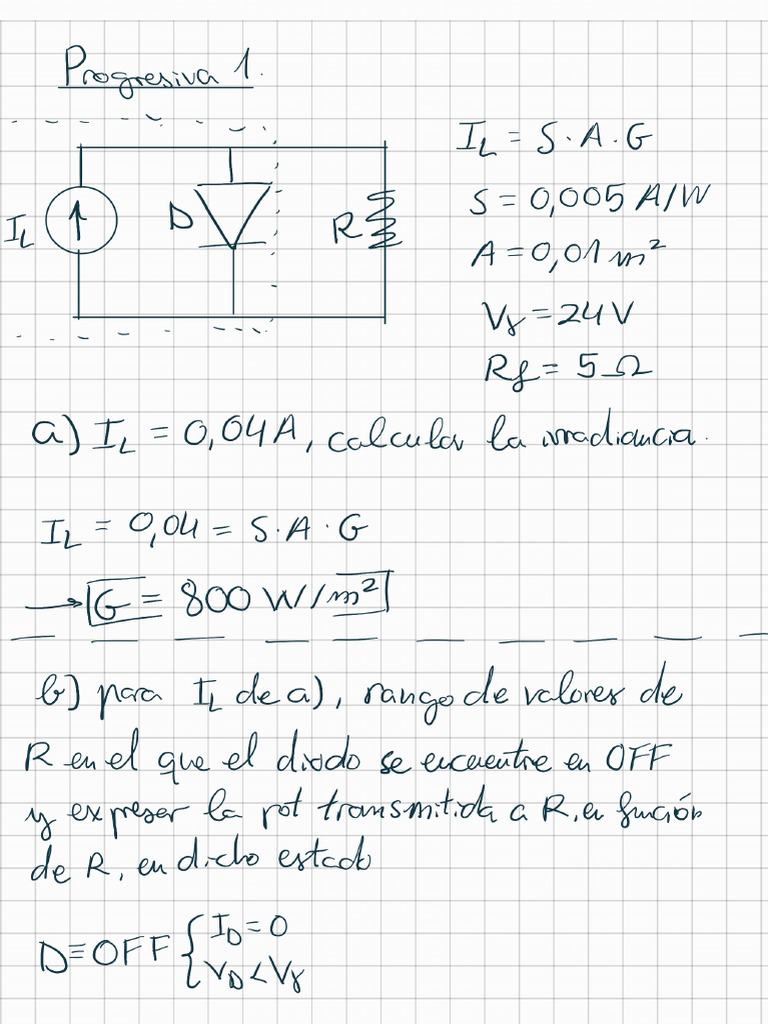 Progresiva 1.
I_L = S·A·G
S = 0,005 A/W
A = 0,01 m²
Vγ = 24V
Rf = 5Ω
I_L
D
R
a) I_L = 0,04A, calcular la irradiancia.
I_L = 0,04 = S·A·G
→ G = 800 W/m²
b) para I_L de a), rango de valores de
R en el que el diodo se encuentre en OFF
y expresar la pot transmitida a R, en función
de R, en dicho estado
D≡OFF { I_D = 0
V_D < Vγ